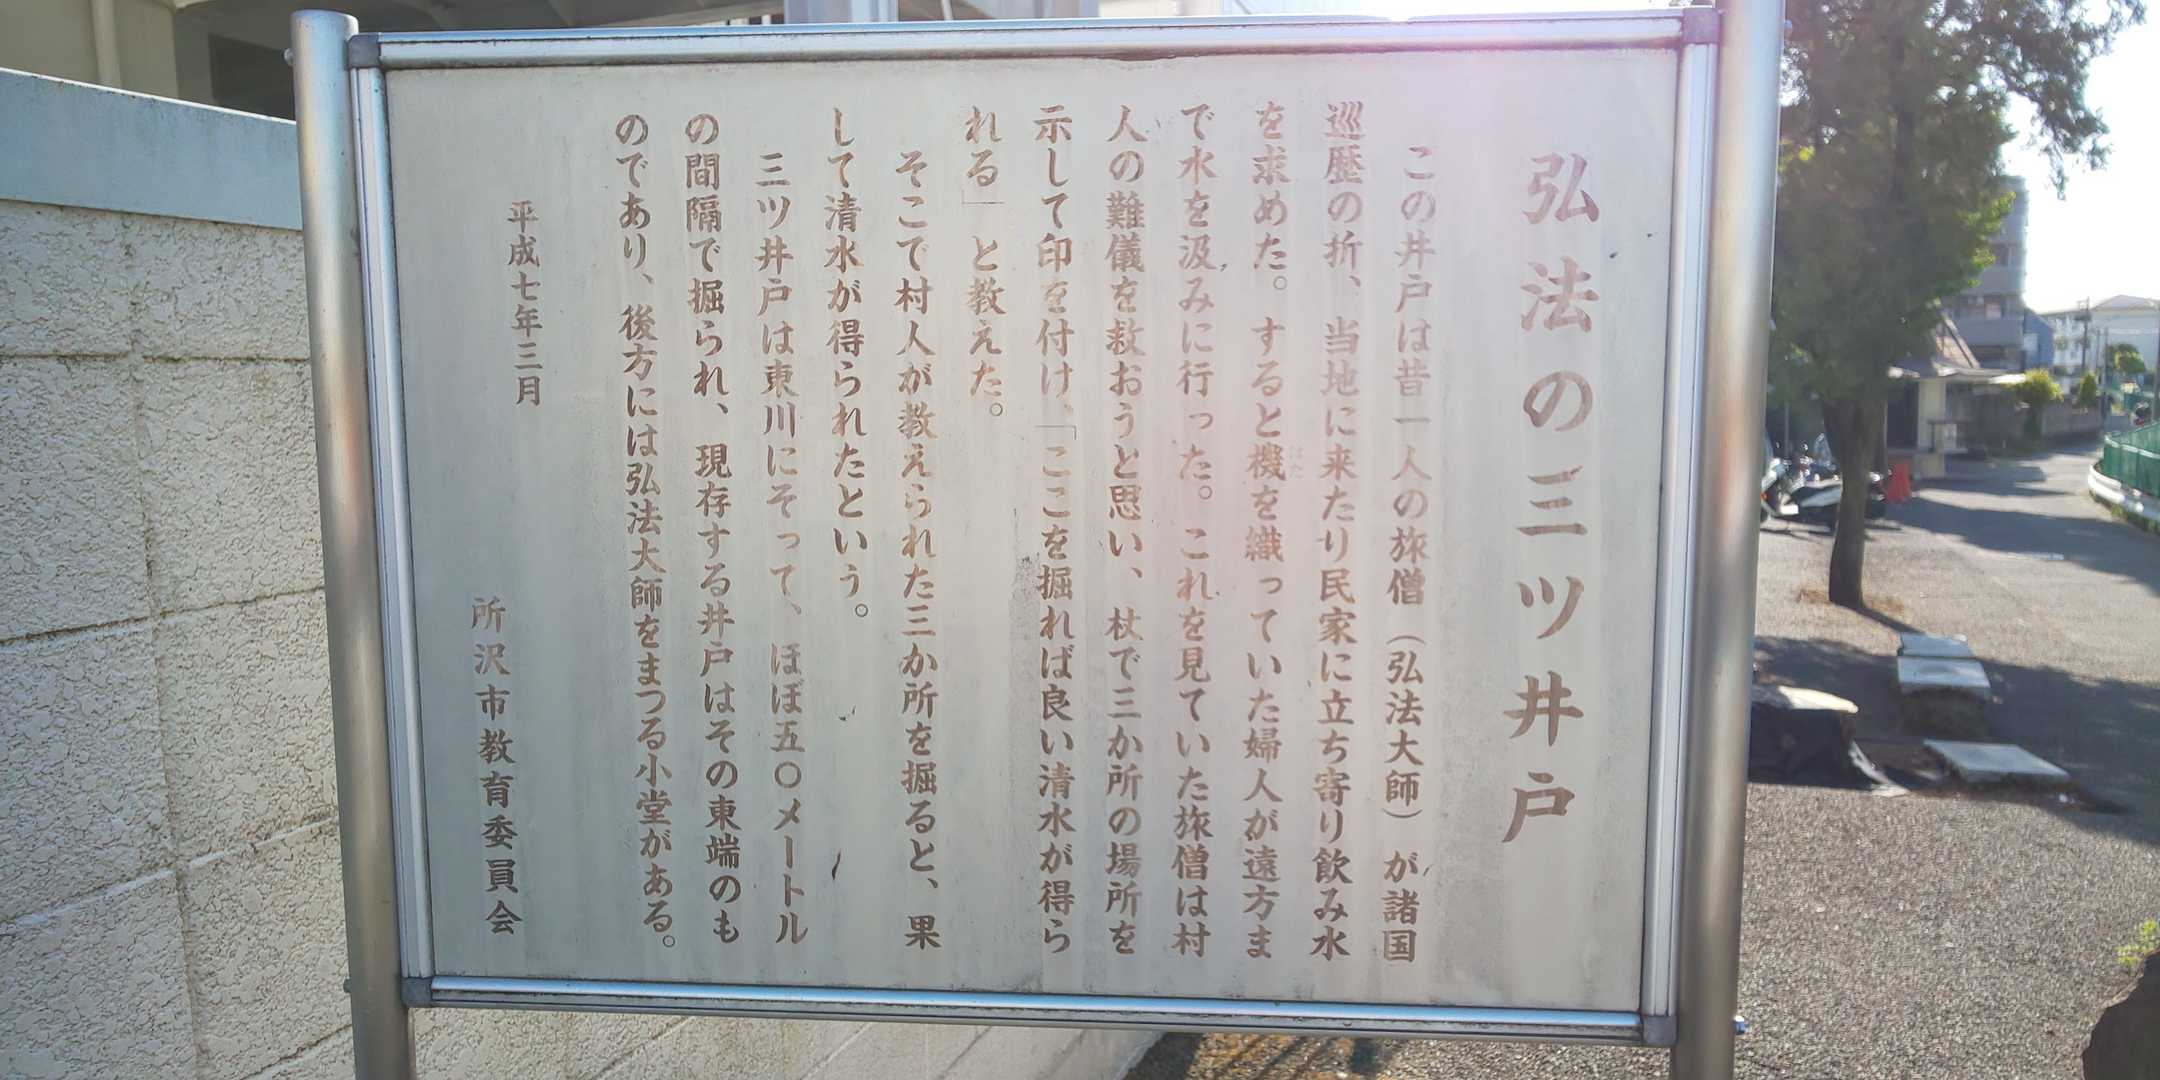 弘法の三ツ井戸
この井戸は昔一人の旅僧（弘法大師）が諸国
巡歴の折、当地に来たり民家に立ち寄り飲み水
を求めた。すると機を織っていた婦人が遠方ま
はた
で水を汲みに行った。これを見ていた旅僧は村
人の難儀を救おうと思い、杖で三か所の場所を
示して印を付け、「ここを掘れば良い清水が得ら
れる」と教えた。
そこで村人が教えられた三か所を掘ると、果
して清水が得られたという。
三ツ井戸は東川にそって、ほぼ五〇メートル
の間隔で掘られ、現存する井戸はその東端のも
のであり、後方には弘法大師をまつる小堂がある。
平成七年三月
所沢市教育委員会